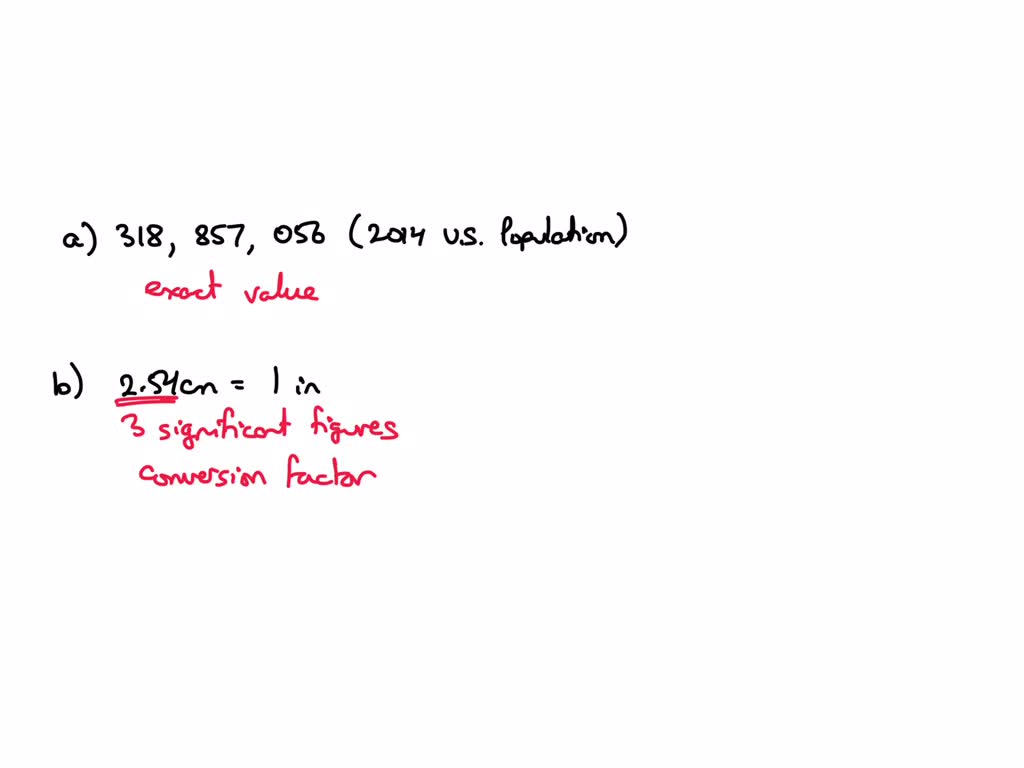 a) 318, 857, 056 (2014 U.S. Population)
exact value
b) 2.54cm = 1 in
3 significant figures
conversion factor